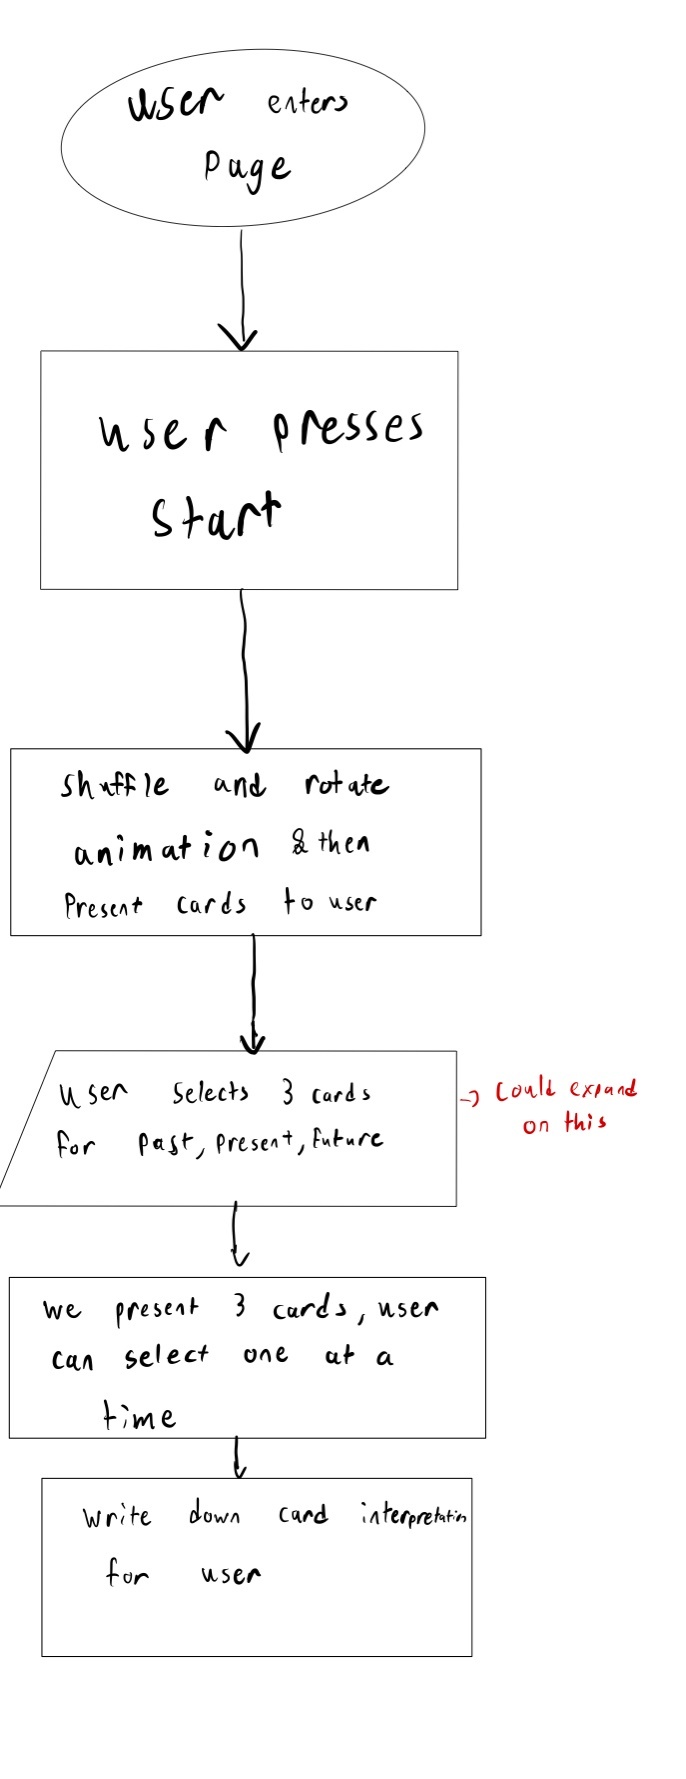 user enters
Page
user presses
Start
Shuffle and rotate
animation & then
Present cards to user
user selects 3 cards
for past, present, future
→ Could expand
on this
we present 3 cards, user
can select one at a
time
write down card interpretation
for user